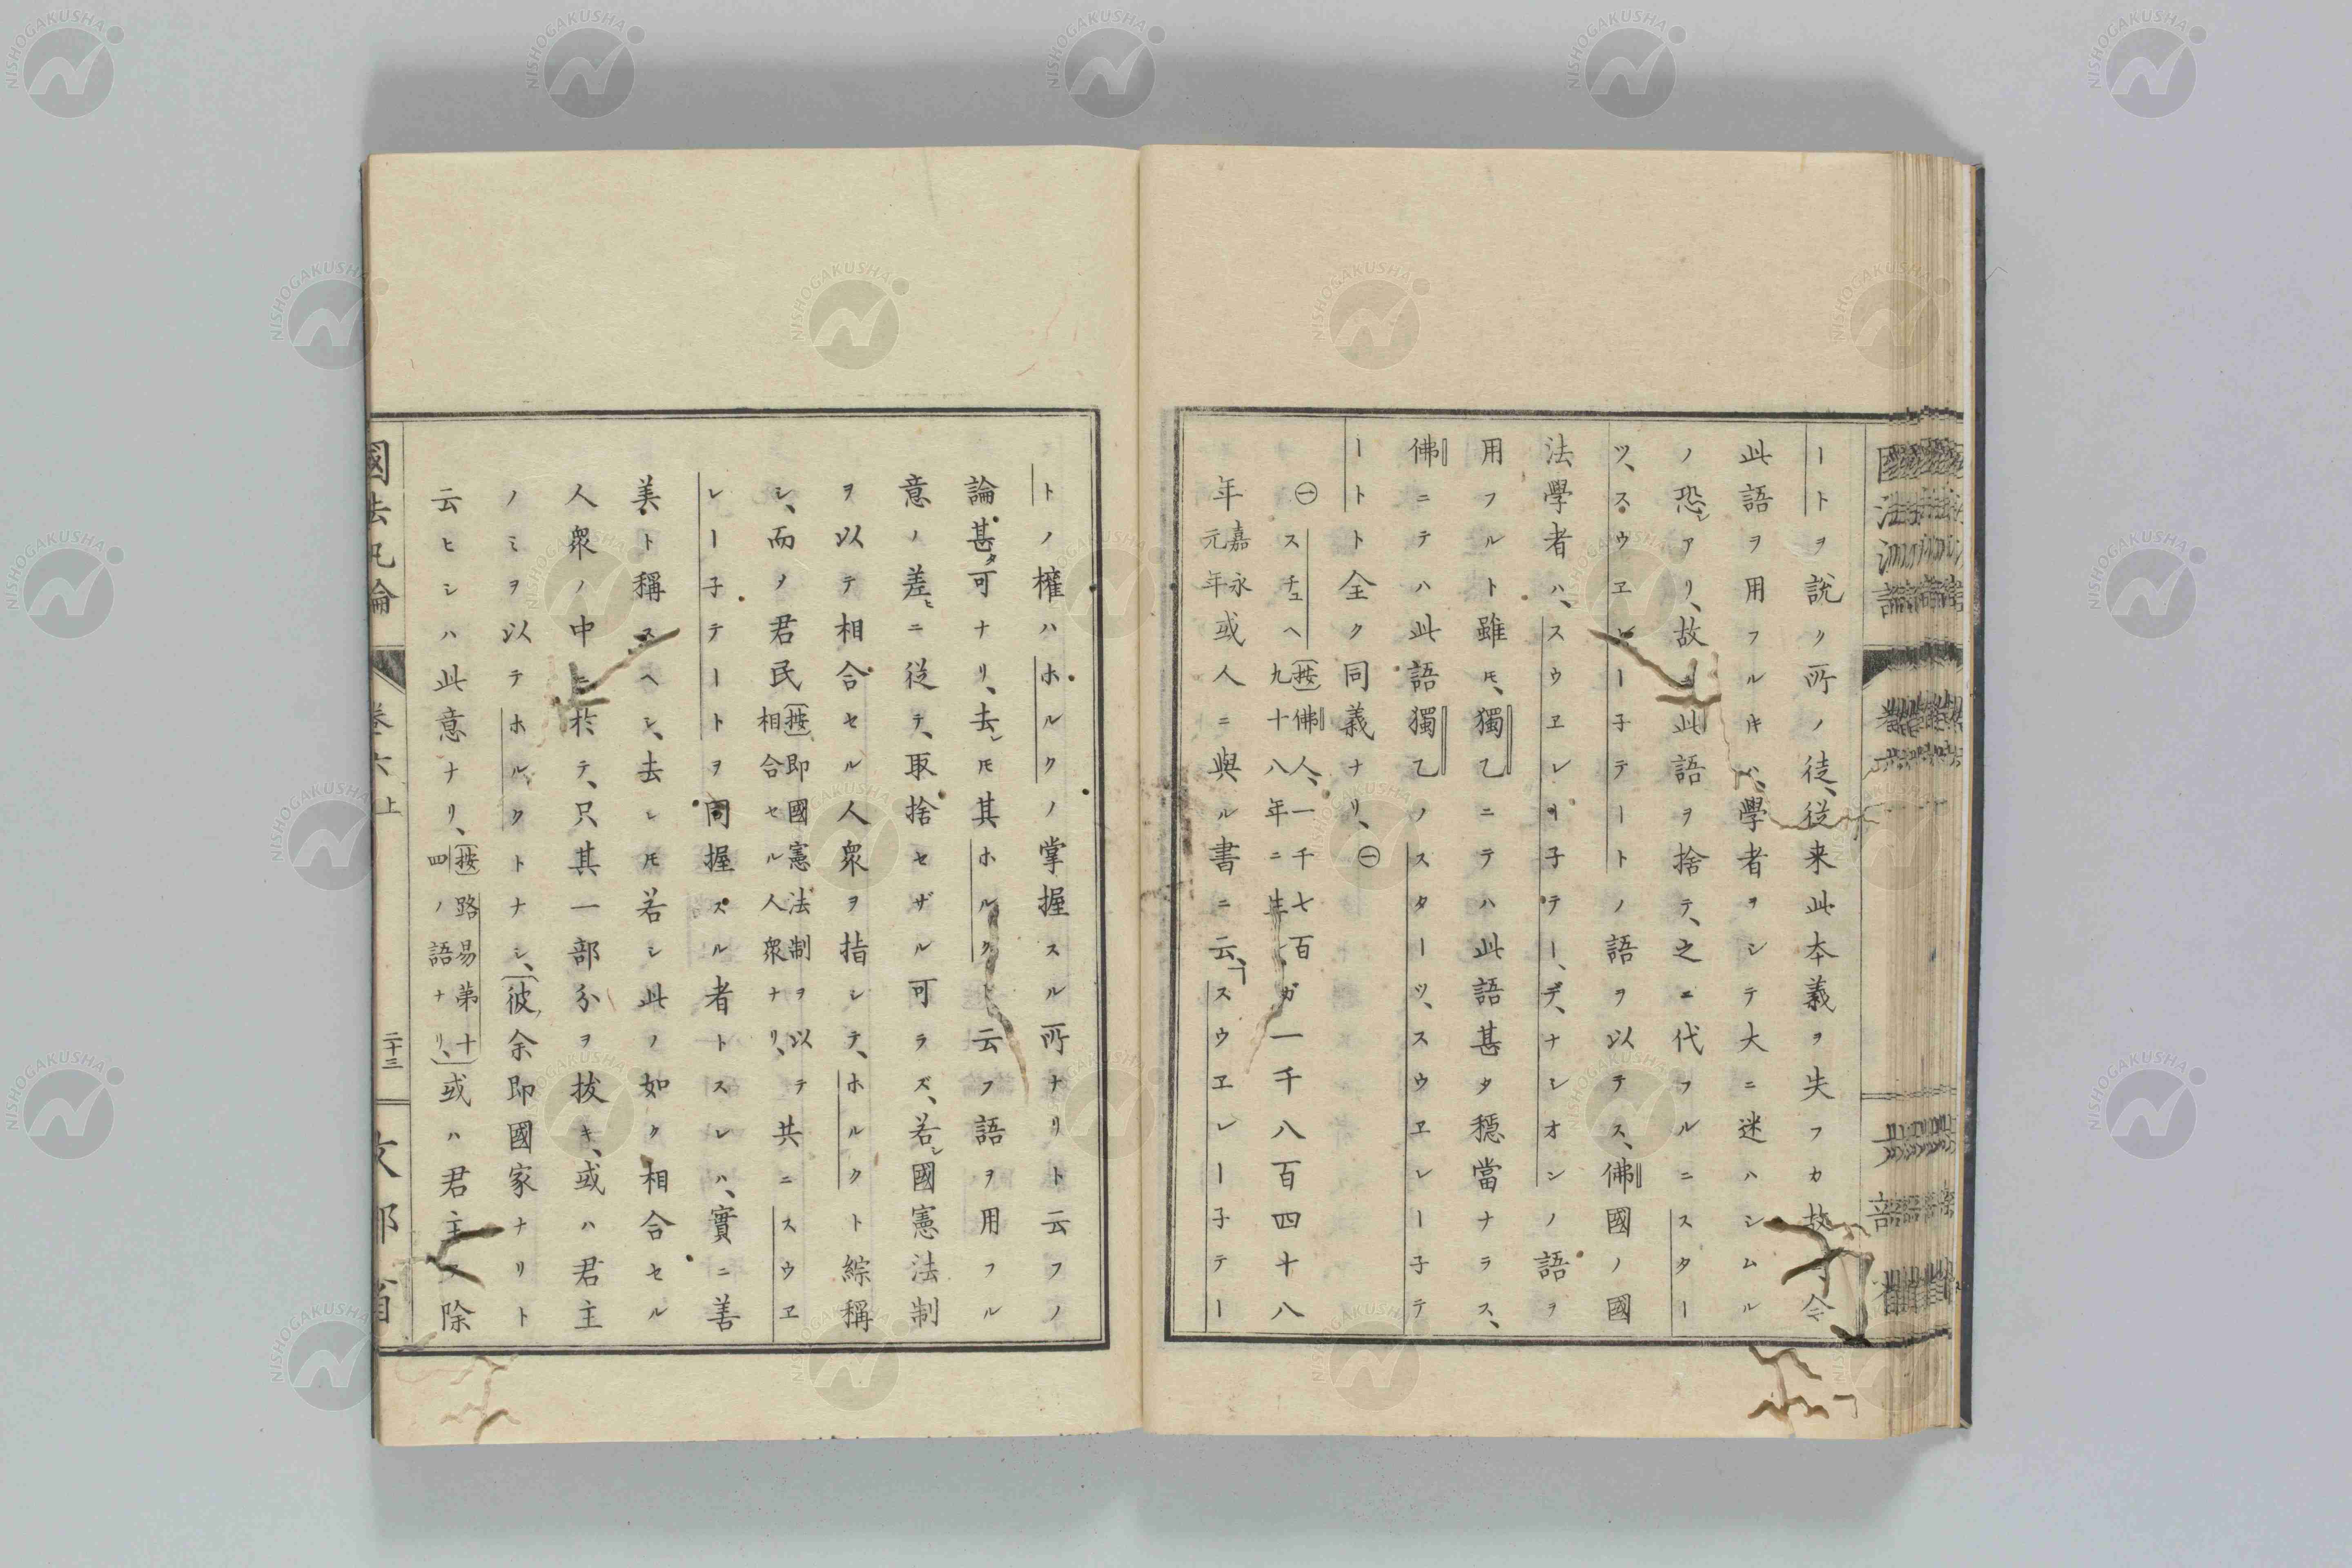 ートヲ説ク所ノ徒、從来此本義ヲ失フカ故ニ今
此語ヲ用フルキバ、學者ヲシテ大ニ迷ハシムル
ノ恐レアリ、故ニ此語ヲ捨テ、之ニ代フルニスター
ツ、スウヱレー子テートノ語ヲ以テス、佛國ノ國
法學者ハ、スウヱレー子テー、デ、ナシオンノ語ヲ
用フルト雖モ、獨乙ニテハ此語甚タ穏當ナラス、
佛ニテハ此語獨乙ノスターツ、スウヱレー子テ
ートト全ク同義ナリ、㊀
㊀スチュヘ(按佛人、一千七百九十八年ニ生レガ一千八百四十八
年嘉永元年或人ニ與ル書ニ云、「スウヱレー子テー
トノ權ハホルクノ掌握スル所ナリト云フノ
論甚タ可ナリ、去レモ其ホルクト云フ語ヲ用フル
意ノ差ヒニ從テ、取捨セザル可ラズ、若シ國憲法制
ヲ以テ相合セル人衆ヲ指シテ、ホルクト綜稱
シ、而メ君民(按即國憲法制ヲ以テ相合セル人衆ナリ、共ニスウヱ
レー子テートヲ同握スル者トスレハ、實ニ善
美ト稱スヘシ、去レモ若シ此ノ如ク相合セル
人衆ノ中ニ於テ、只其一部分ヲ拔キ、或ハ君主
ノミヲ以テホルクトナシ、(彼、余即國家ナリト
云ヒシハ此意ナリ、(按路易第十四ノ語ナリ、)或ハ君主ヲ除
國法汎論
卷六上
二十三
文部省
NISHOGAKUSHA